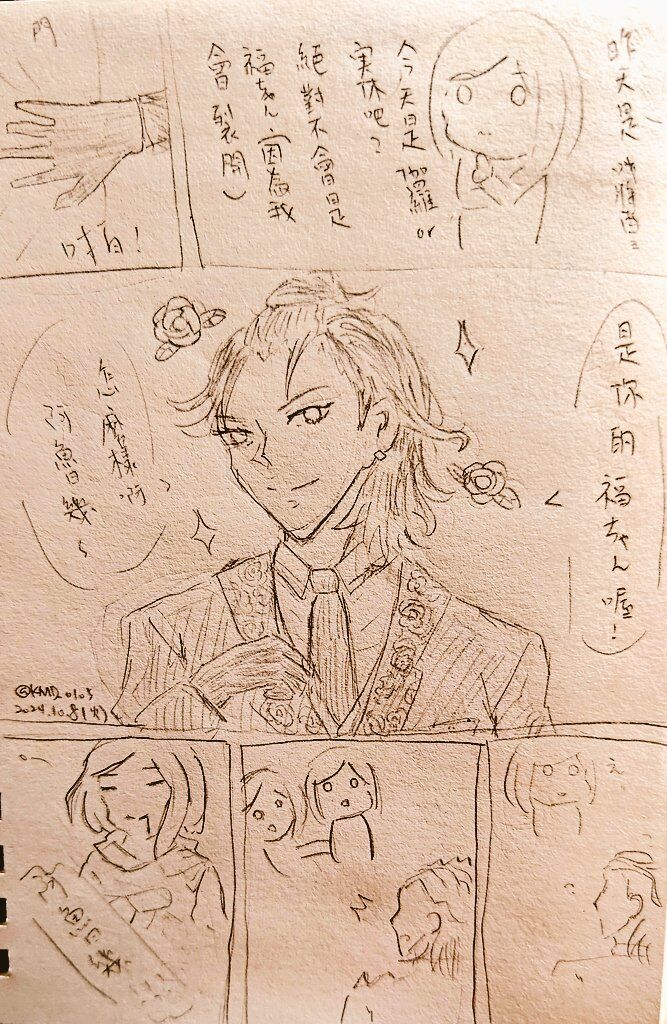 昨天是
今天是伽羅or
実休吧？
絕對不會是
福ちゃん因為我
會裂開)
門
啪！
是你的福ちゃん喔！
怎麼樣啊
阿魯幾~
@KMD0105
2024.10.8(火)
え